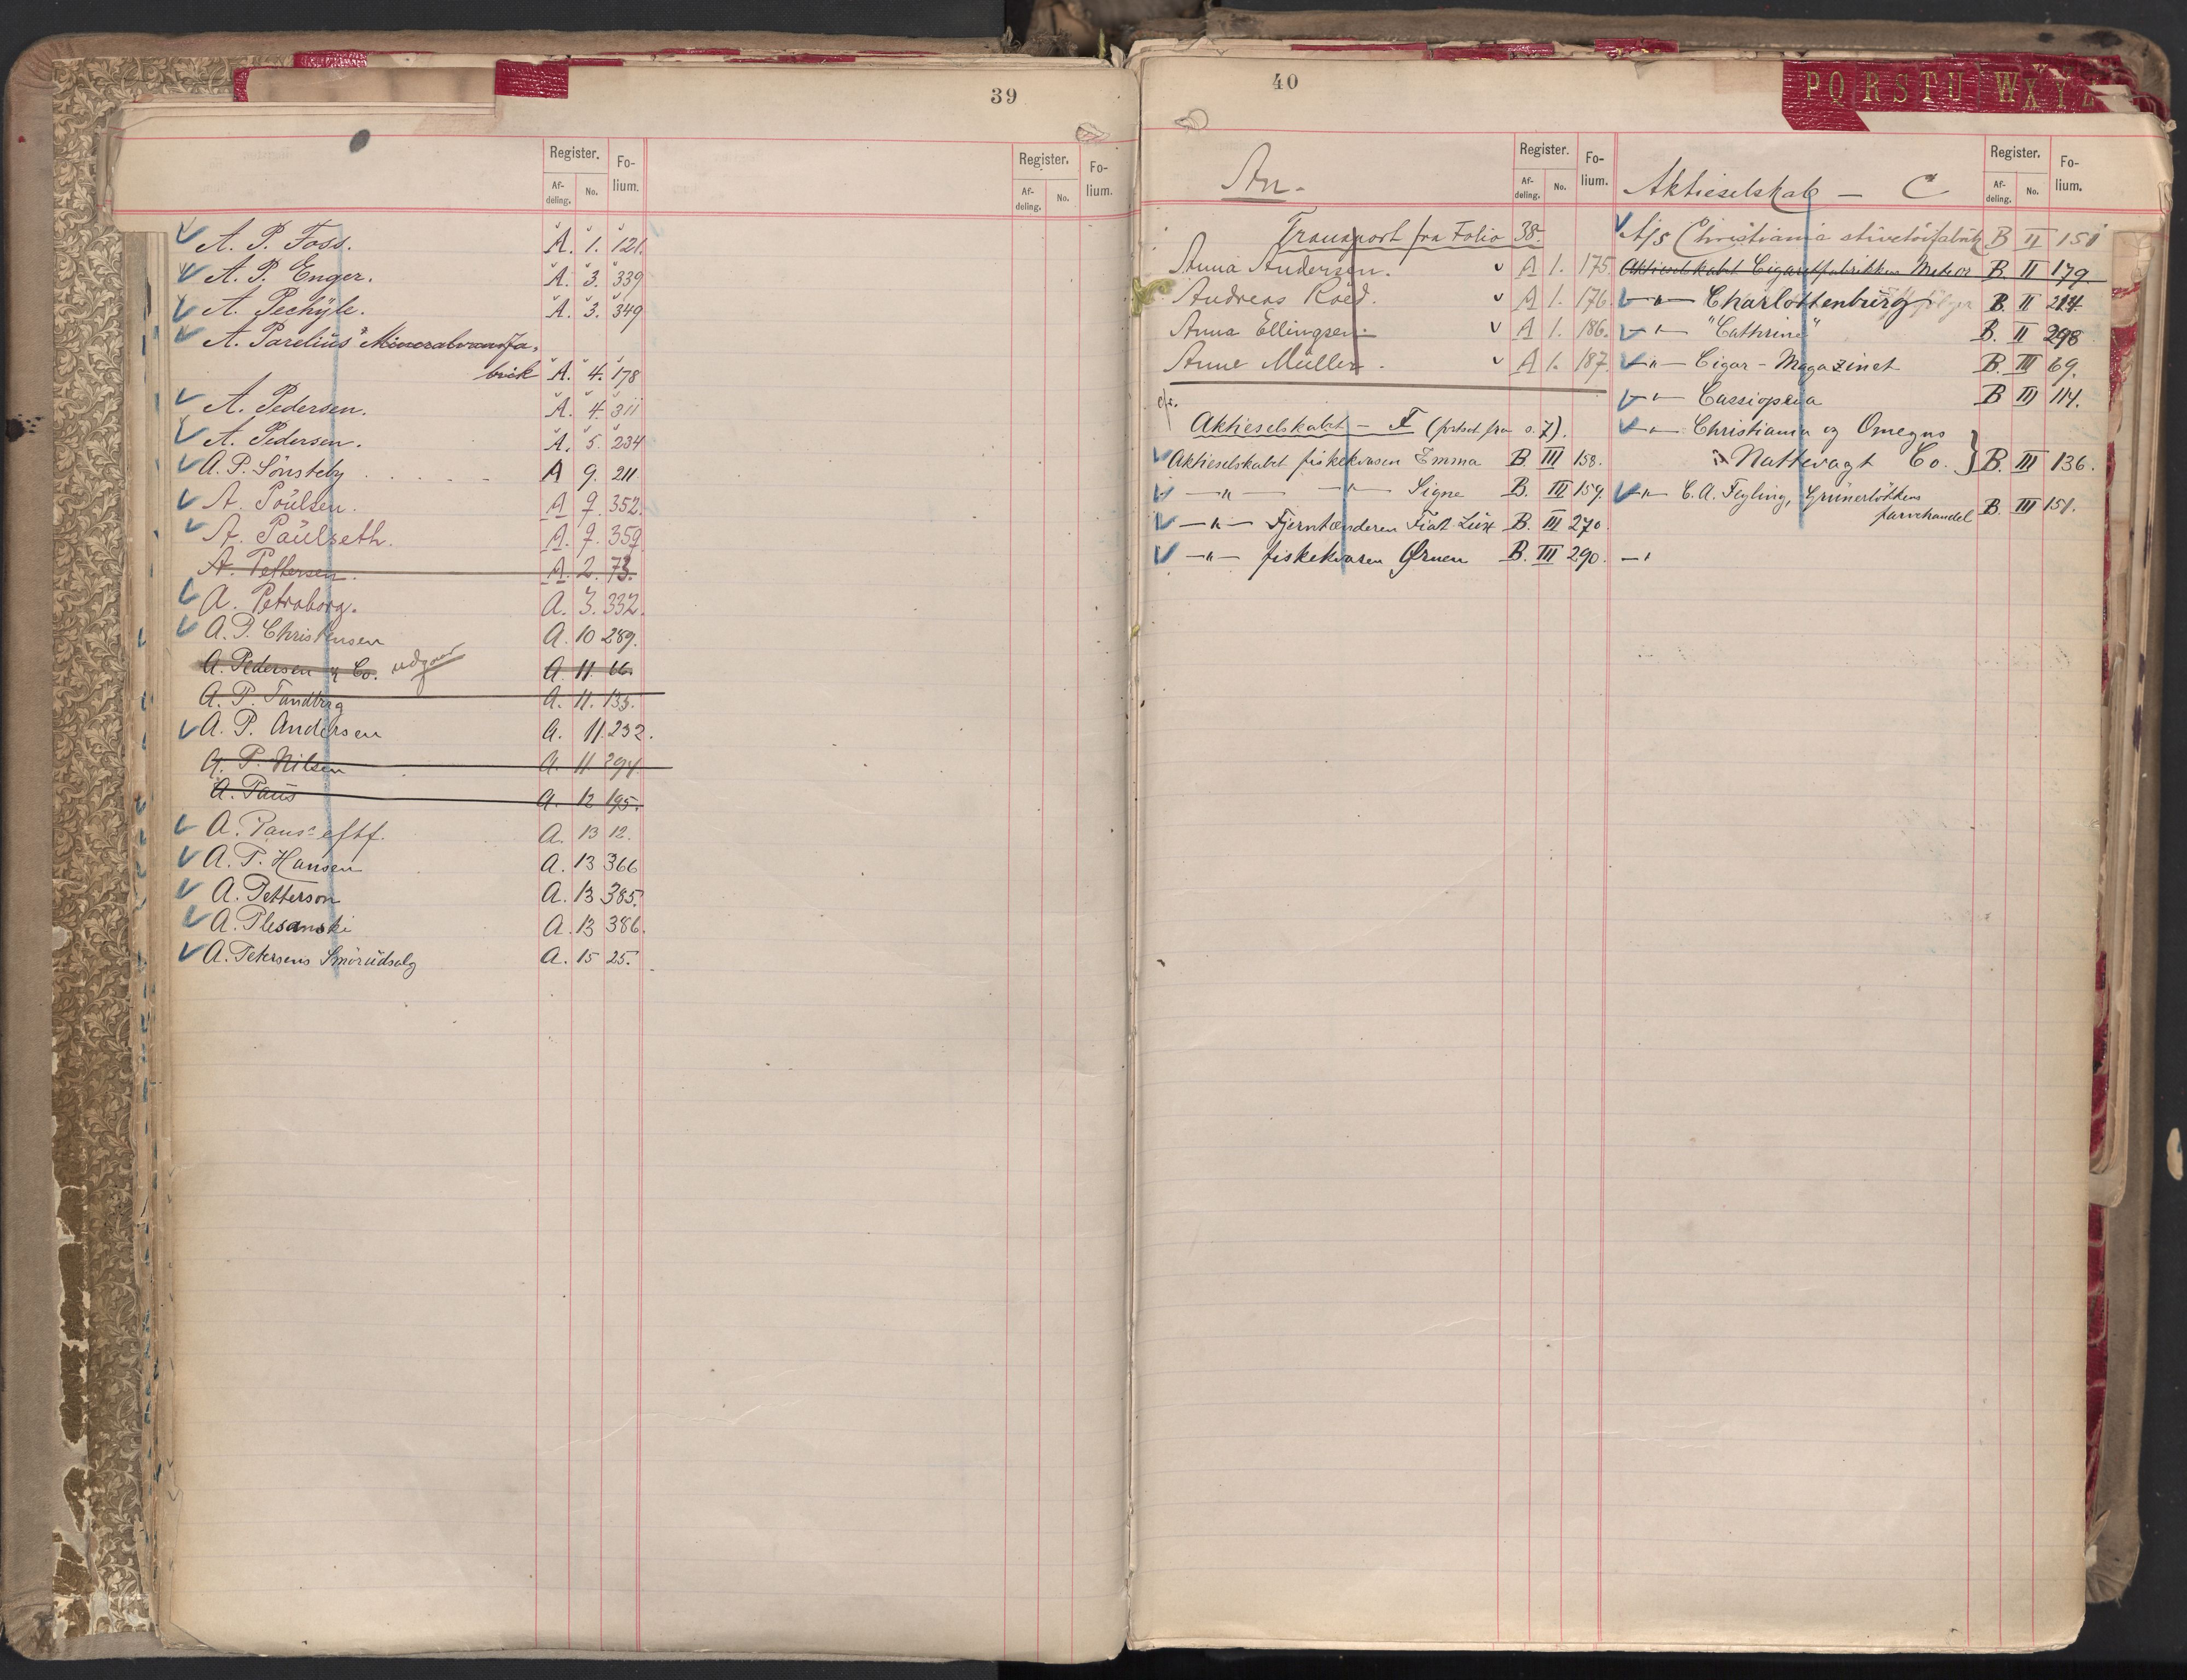 39
Register. Fo-lium. Register. Fo-lium.
Af-deling. No. Af-deling. No.
A. P. Foss. A. 1. 121.
A. P. Enger. A. 3. 339
A. Pechüle. A. 3. 349
A. Parelius' Mineralvandfa-
brik A. 4. 178
A. Pedersen. A. 4. 311
A. Pedersen. A. 5. 234
A. P. Sönsteby A 9. 211
A. Poülsen. A 7. 352.
A. Paülseth. A. 7. 359
A. Pettersen. A. 2. 73.
A. Petraborg. A. 3. 332.
A. P. Christensen A. 10 289.
A. Pedersen & Co. udgaar A. 11. 66.
A. P. Tandberg A. 11. 135.
A. P. Andersen A. 11. 232.
A. P. Nilsen A. 11. 394.
A. Paus A. 12 195.
A. Paus' eftf. A. 13 12.
A. P. Hansen A. 13 366
A. Petterson A. 13 385.
A. Plesanski A. 13 386.
A. Petersens Smörüdsalg A. 15 25.
40
P Q R S T U W X Y Z
Register. Fo-lium. Register. Fo-lium.
Af-deling. No. Af-deling. No.
An.
Transport fra Folio 38.
Anna Andersen. A 1. 175.
Andreas Röed. A 1. 176.
Anna Ellingsen. A 1. 186.
Anne Müller. A 1. 187.
Aktieselskabet - F (fortsat fra s. 7).
Aktieselskabet fiskekvasen Emma B. III 158.
—"— —"— Signe B. III 159.
—"— Fjerntænderen Fiat Lux B. III 270.
—"— fiskekvasen Ørnen B. III 290.
Aktieselskab — C
A/S Christiania stivetöifabrik B II 151
Aktieselskabet Cigaretfabrikken Meteor B. II 179.
—"— Charlottenburg B. II 214.
—"— "Cathrine" B. II 298
—"— Cigar-Magazinet B. III 69.
—"— Cassiopeia B III 114.
—"— Christiania og Omegns
Nattevagt Co. } B. III 136.
—"— C. A. Fegling, Grünerlökkens
farvehandel B. III 151.
—"